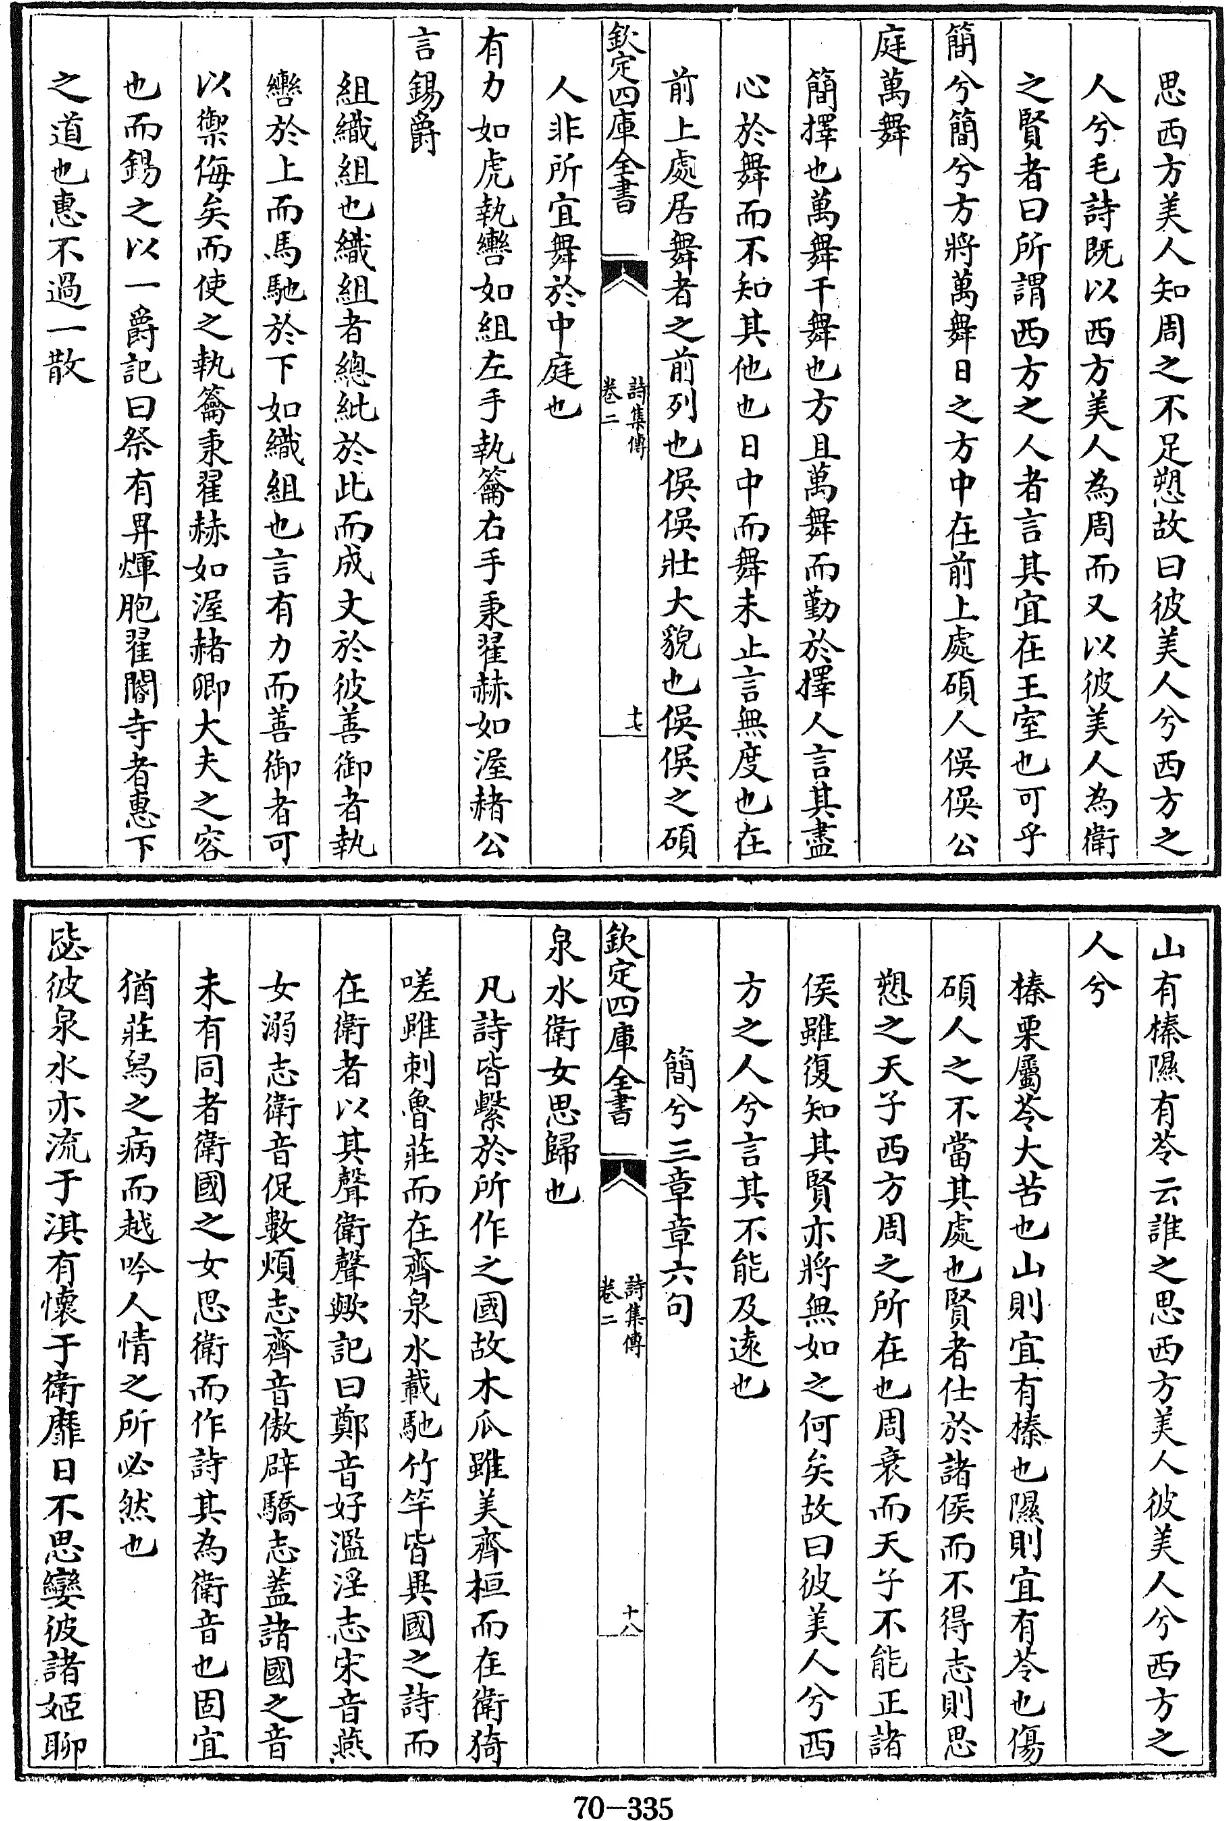 思西方美人知周之不足愬故曰彼美人兮西方之
人兮毛詩既以西方美人為周而又以彼美人為衛
之賢者曰所謂西方之人者言其宜在王室也可乎
簡兮簡兮方將萬舞日之方中在前上處碩人俁俁公
庭萬舞
簡擇也萬舞干舞也方且萬舞而勤於擇人言其盡
心於舞而不知其他也日中而舞未止言無度也在
前上處居舞者之前列也俁俁壯大貌也俁俁之碩
欽定四庫全書
詩集傳
卷二
十七
人非所宜舞於中庭也
有力如虎執轡如組左手執籥右手秉翟赫如渥赭公
言錫爵
組織組也織組者總紕於此而成文於彼善御者執
轡於上而馬馳於下如織組也言有力而善御者可
以禦侮矣而使之執籥秉翟赫如渥赭卿大夫之容
也而錫之以一爵記曰祭有畀煇胞翟閽寺者惠下
之道也惠不過一散
山有榛隰有苓云誰之思西方美人彼美人兮西方之
人兮
榛栗屬苓大苦也山則宜有榛也隰則宜有苓也傷
碩人之不當其處也賢者仕於諸侯而不得志則思
愬之天子西方周之所在也周衰而天子不能正諸
侯雖復知其賢亦將無如之何矣故曰彼美人兮西
方之人兮言其不能及遠也
簡兮三章章六句
欽定四庫全書
詩集傳
卷二
十八
泉水衛女思歸也
凡詩皆繫於所作之國故木瓜雖美齊桓而在衛猗
嗟雖刺魯莊而在齊泉水載馳竹竿皆異國之詩而
在衛者以其聲衛聲歟記曰鄭音好濫淫志宋音燕
女溺志衛音促數煩志齊音傲辟驕志蓋諸國之音
未有同者衛國之女思衛而作詩其為衛音也固宜
猶莊舄之病而越吟人情之所必然也
毖彼泉水亦流于淇有懷于衛靡日不思孌彼諸姬聊
70-335